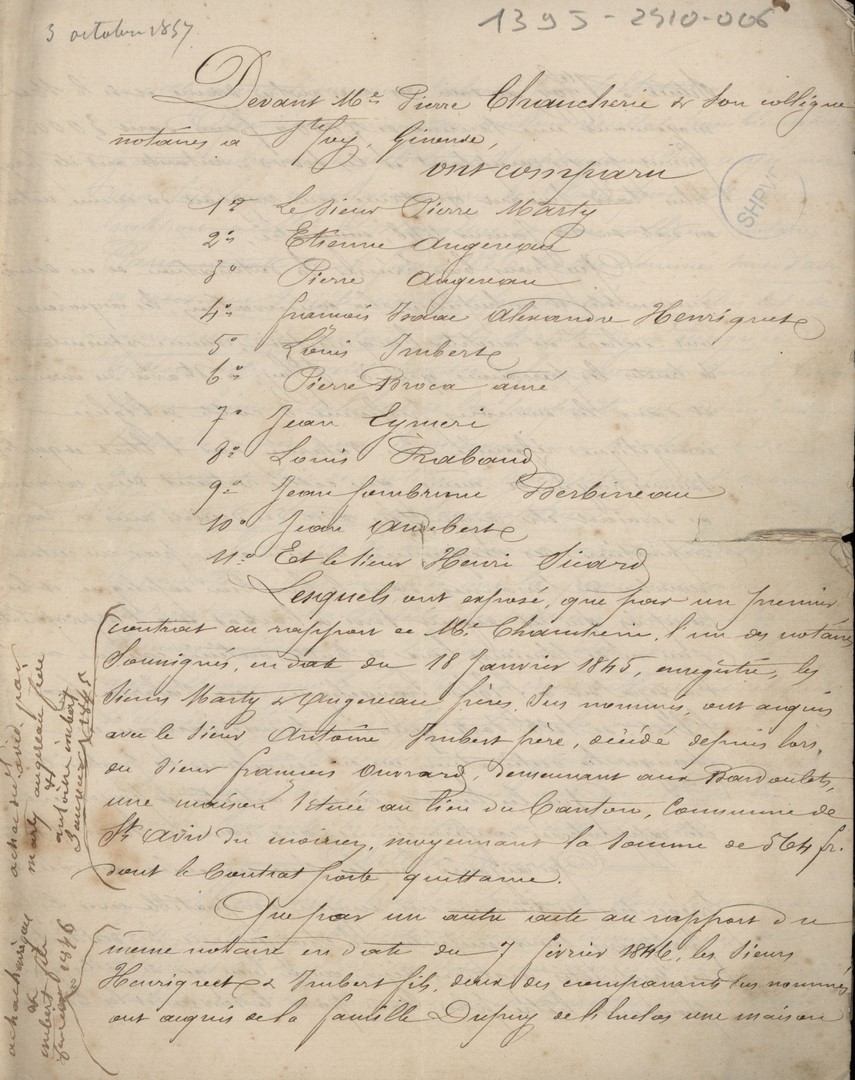 3 octobre 1857
1395-2910-006
Devant Me Pierre Chaucherie & son collègue
notaires a Ste foy, Gironde,
ont comparu
SHPVD
1º Le sieur Pierre Marty
2º Etienne Augereau
3º Pierre Augereau
4º françois Isaac Alexandre Henriquet
5º Louis Imbert
6º Pierre Broca ainé
7º Jean Eymeri
8º Louis Rabaud
9º Jean Berbineau
10º Jean Audebert
11º Et le sieur Henri Sicard
Lesquels ont exposé, que par un premier
contrat au rapport de Me Chaucherie, l'un des notaires
Soussignés, en date du 18 Janvier 1845, enregistré, les
Sieurs Marty & Augereau frères, sus nommés, ont acquis
avec le sieur Antoine Imbert père, décédé depuis lors,
du sieur françois Ouvrard, demeurant aux Bardoulets,
une maison située au lieu du Canton, Commune de
St avid du moiron, moyennant la somme de 564 fr.
dont le Contrat porte quittance.
Que par un autre acte au rapport du
même notaire en date du 7 février 1846, les sieurs
Henriquet & Imbert fils, deux des comparants sus nommés
ont acquis de la famille Dupuy de une maison
achat du par
marty augereau frère
&
antoine imbert
Janvier 1845
achat henriquet
&
imbert fils
fevrier 1846